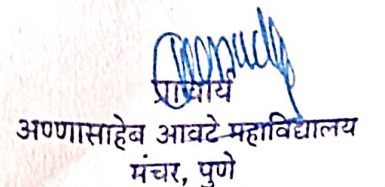 प्राचार्य
अण्णासाहेब आवटे महाविद्यालय
मंचर, पुणे